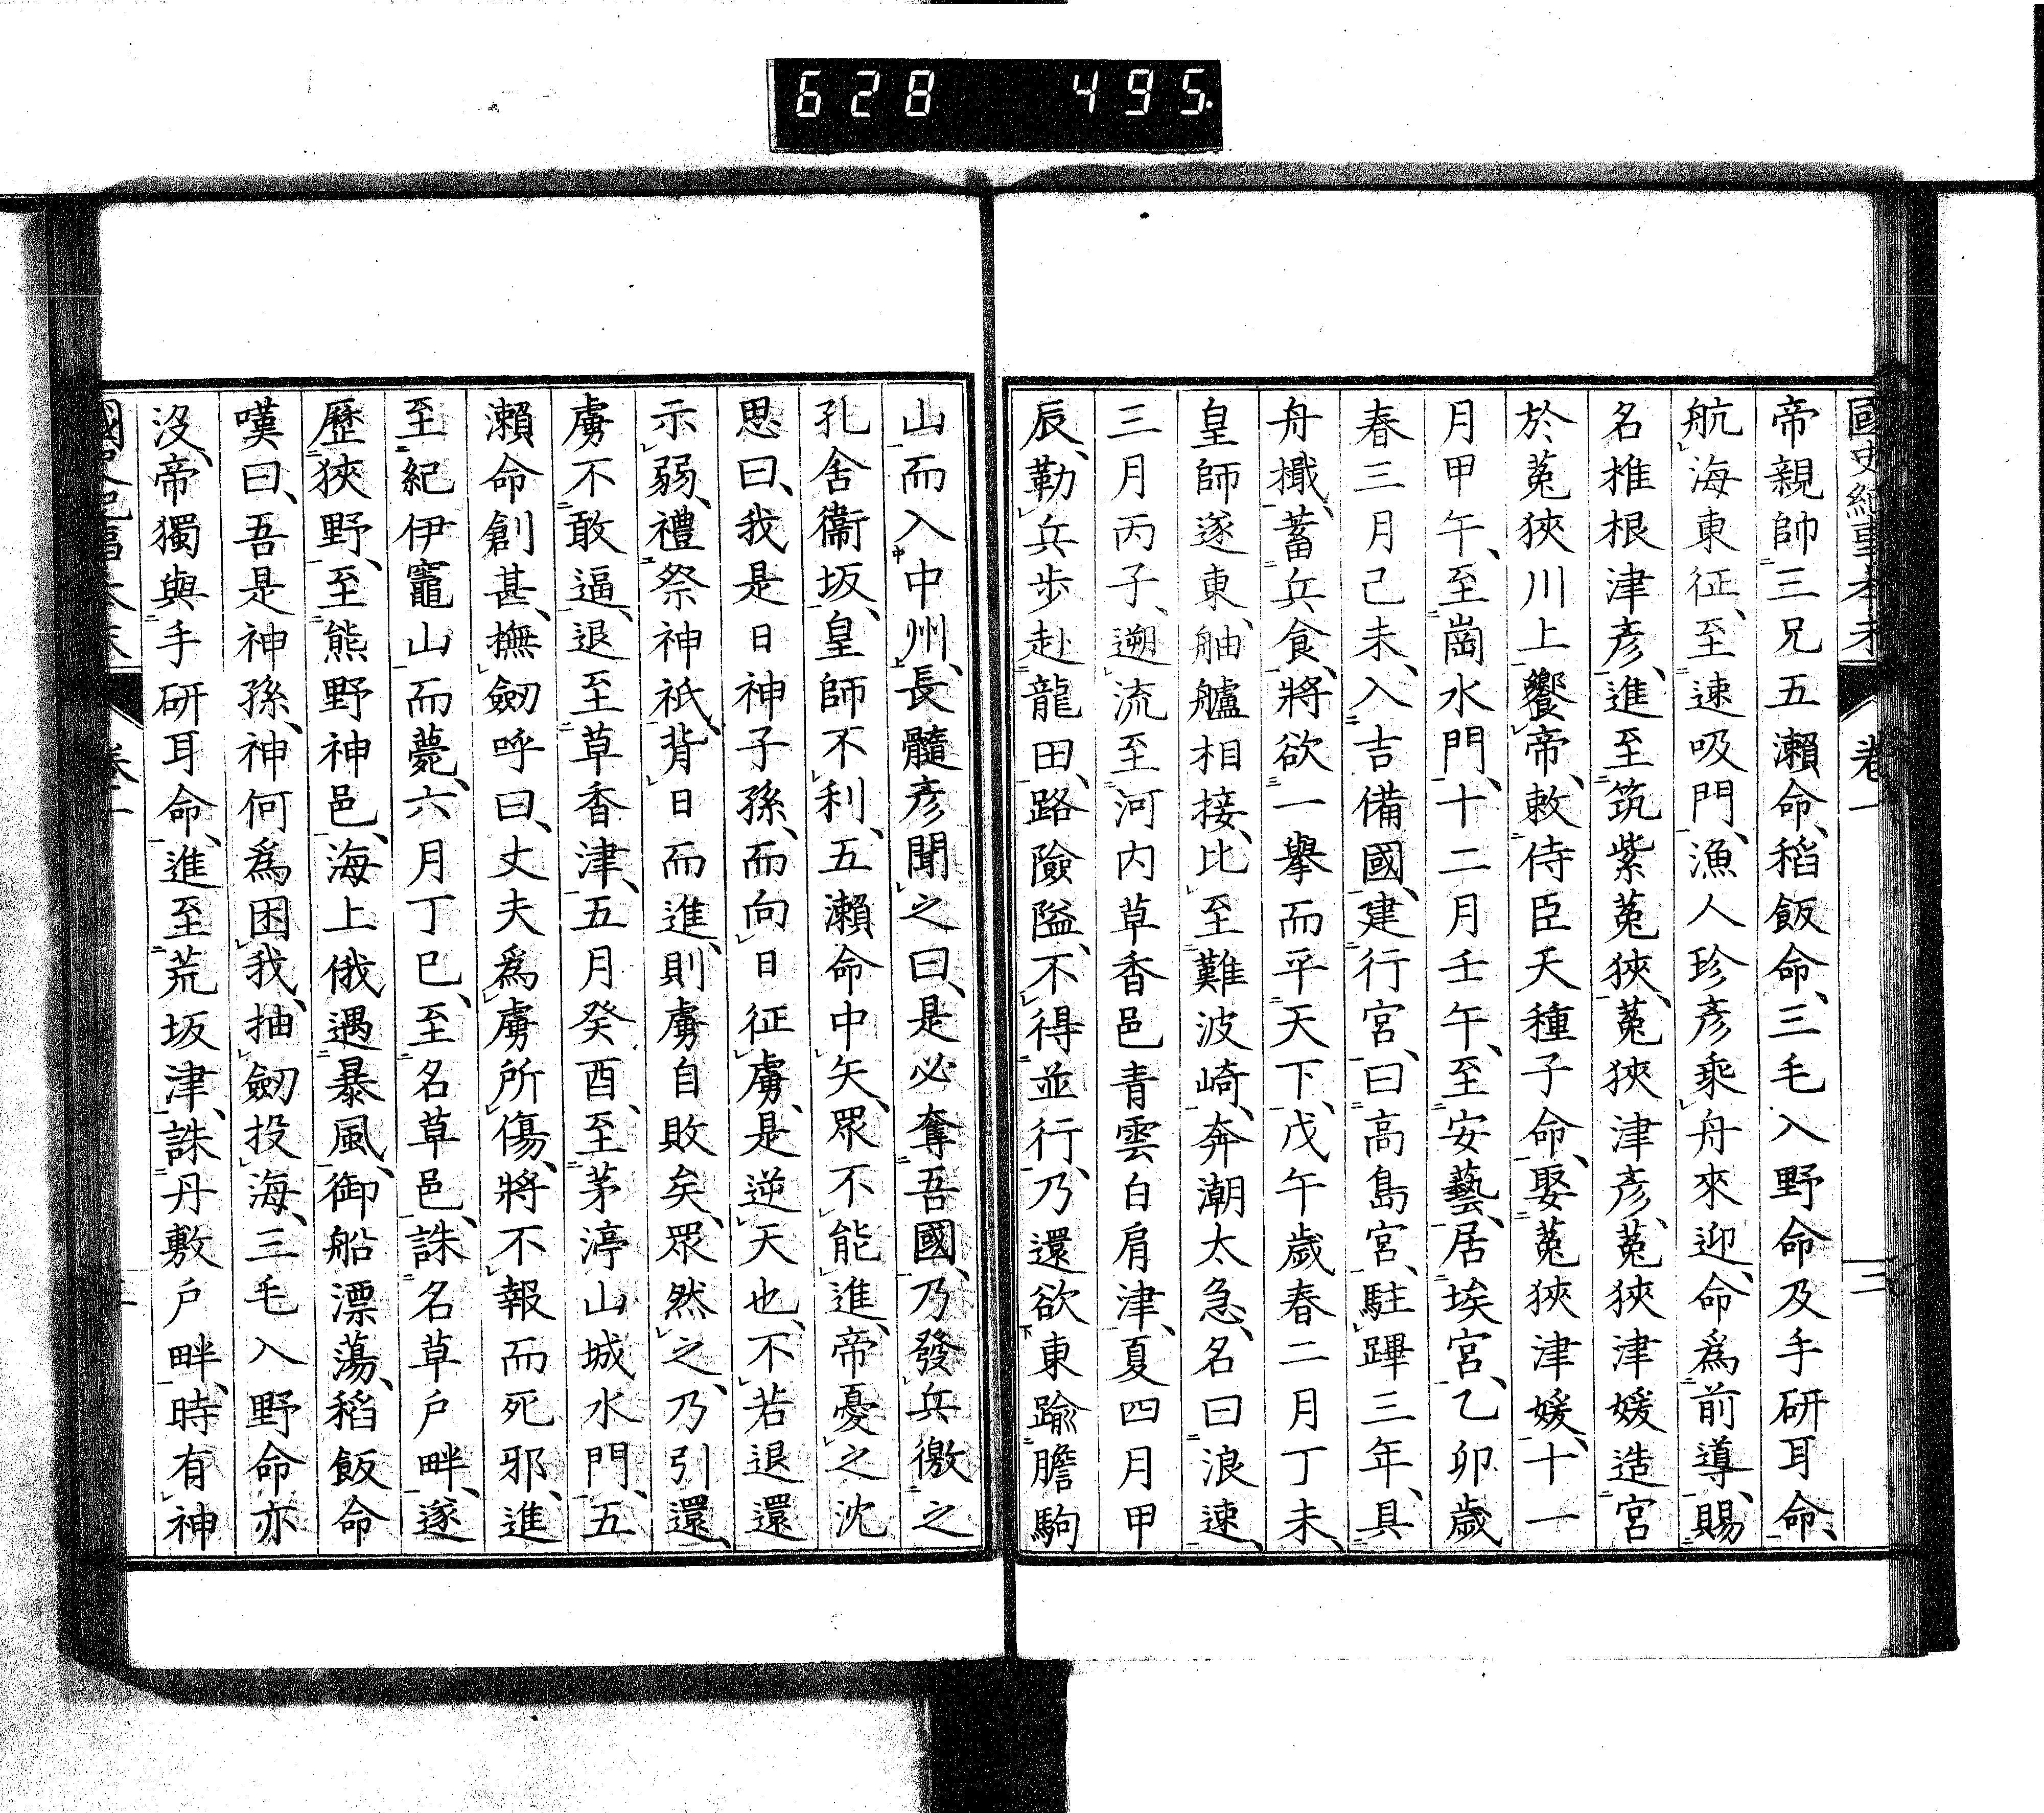 628 495.
國史紀事本末 卷一 三
帝親帥三兄五瀨命、稻飯命、三毛入野命及手研耳命、
航海東征、至速吸門、漁人珍彥乘舟來迎、命爲前導、賜
名椎根津彥、進至筑紫菟狹、菟狹津彥、菟狹津媛造宮
於菟狹川上饗帝、敕侍臣天種子命、娶菟狹津媛、十一
月甲午、至崗水門、十二月壬午、至安藝、居埃宮、乙卯歲
春三月己未、入吉備國、建行宮、曰高島宮、駐蹕三年、具
舟檝、蓄兵食、將欲一擧而平天下、戊午歲春二月丁未、
皇師遂東、舳艫相接、比至難波崎、奔潮太急、名曰浪速、
三月丙子、遡流至河內草香邑青雲白肩津、夏四月甲
辰、勒兵步赴龍田、路險隘、不得並行、乃還欲東踰膽駒
山而入中州、長髓彥聞之曰、是必奪吾國、乃發兵徼之
孔舍衞坂、皇師不利、五瀨命中矢、眾不能進、帝憂之沈
思曰、我是日神子孫、而向日征虜、是逆天也、不若退還
示弱、禮祭神祇、背日而進、則虜自敗矣、眾然之、乃引還、
虜不敢逼、退至草香津、五月癸酉、至茅渟山城水門、五
瀨命創甚、撫劒呼曰、丈夫爲虜所傷、將不報而死邪、進
至紀伊竈山而薨、六月丁巳、至名草邑、誅名草戶畔、遂
歷狹野、至熊野神邑、海上俄遇暴風、御船漂蕩、稻飯命
嘆曰、吾是神孫、神何爲困我、抽劒投海、三毛入野命亦
沒、帝獨與手研耳命、進至荒坂津、誅丹敷戶畔、時有神